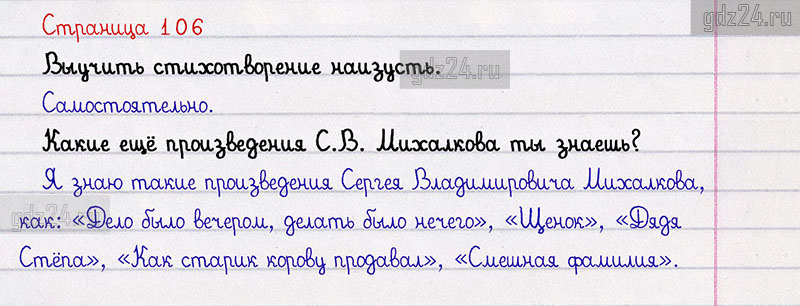 gdz24.ru
Страница 106
Выучить стихотворение наизусть.
gdz24.ru
Самостоятельно.
Какие ещё произведения С.В. Михалкова ты знаешь?
Я знаю такие произведения Сергея Владимировича Михалкова,
gdz24.ru
как: «Дело было вечером, делать было нечего», «Щенок», «Дядя
Стёпа», «Как старик корову продавал», «Смешная фамилия».